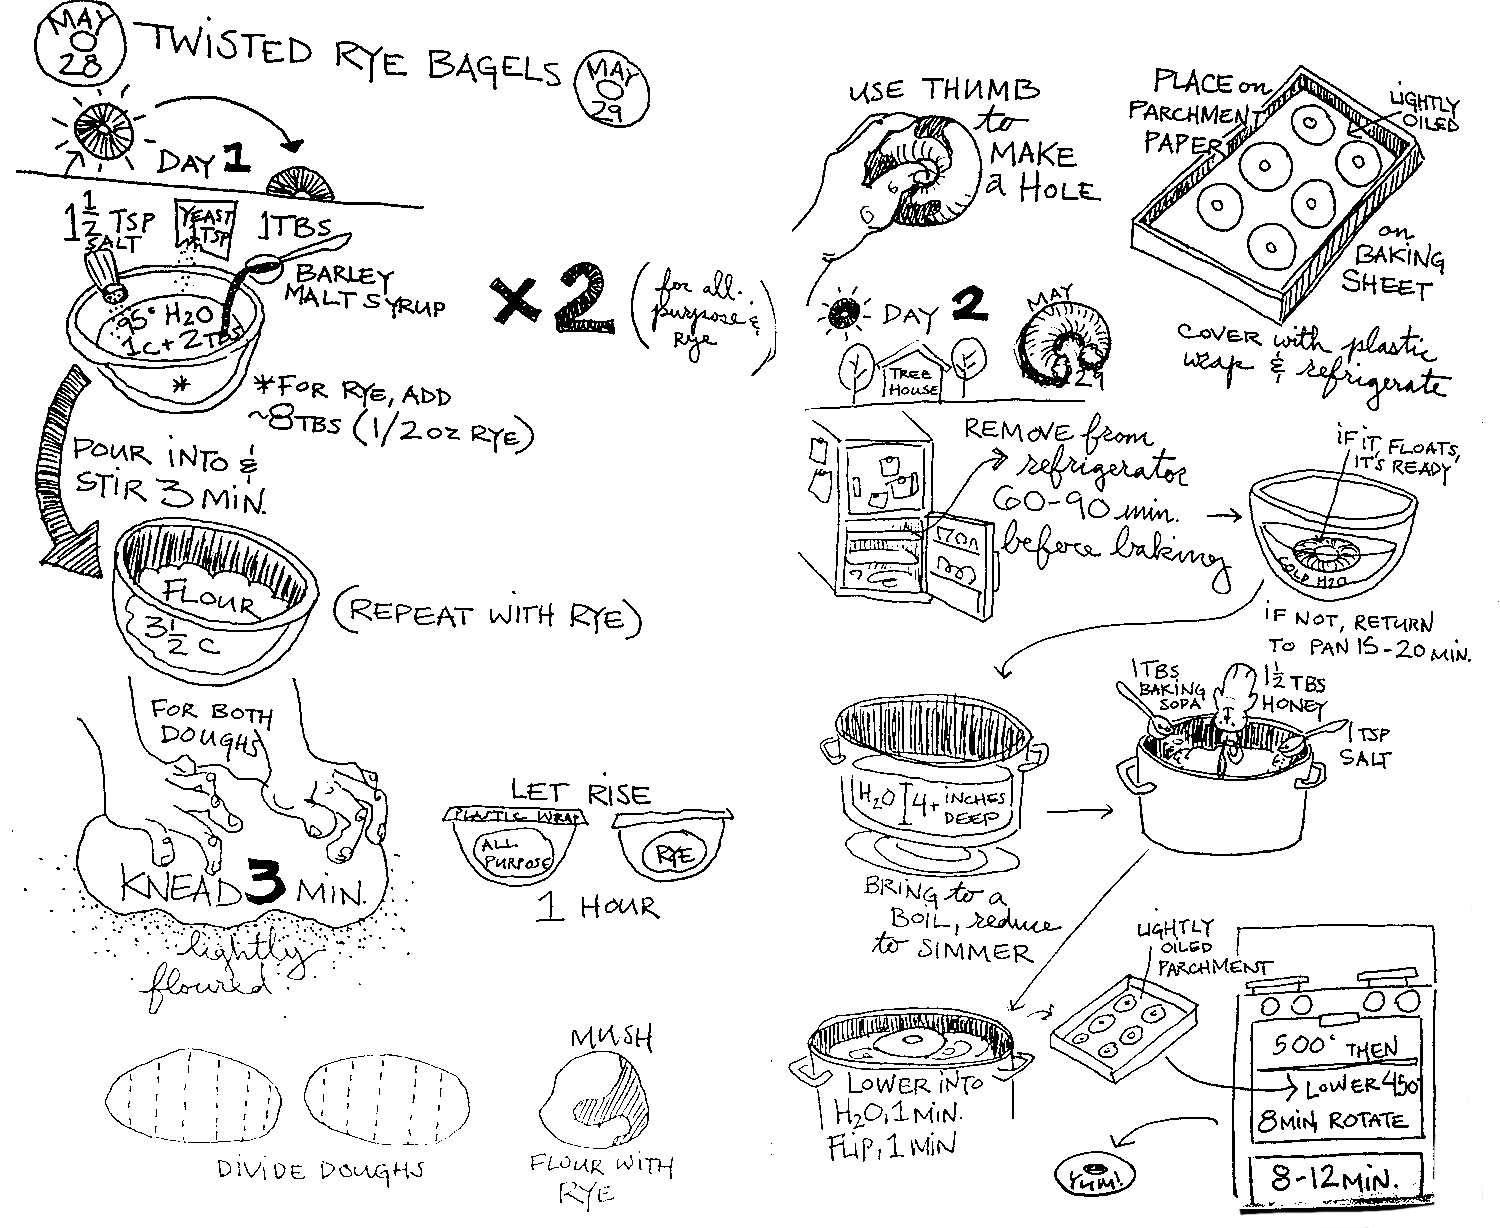 MAY
28
TWISTED RYE BAGELS
MAY
29
DAY 1
1 1/2 TSP
SALT
YEAST
1 TSP
1 TBS
BARLEY
MALT SYRUP
95° H2O
1C + 2 TBS
*
*FOR RYE, ADD
~8TBS (1/2oz RYE)
×2
(for all-
purpose &
rye)
POUR INTO &
STIR 3 MIN.
FLOUR
3 1/2 C
(REPEAT WITH RYE)
FOR BOTH
DOUGHS
KNEAD 3 MIN.
lightly
floured
LET RISE
PLASTIC WRAP
ALL
PURPOSE
RYE
1 HOUR
DIVIDE DOUGHS
MUSH
FLOUR WITH
RYE
USE THUMB
to
MAKE
a HOLE
PLACE on
PARCHMENT
PAPER
LIGHTLY
OILED
on
BAKING
SHEET
COVER with plastic
wrap & refrigerate
DAY 2
TREE
HOUSE
MAY
29
REMOVE from
refrigerator
60-90 min.
before baking
IF IT FLOATS,
IT'S READY
COLD H2O
IF NOT, RETURN
TO PAN 15-20 MIN.
H2O 4+ INCHES
DEEP
BRING to a
BOIL, reduce
to SIMMER
1TBS
BAKING
SODA
1 1/2 TBS
HONEY
1 TSP
SALT
LOWER INTO
H2O, 1 MIN.
FLIP, 1 MIN
LIGHTLY
OILED
PARCHMENT
500° THEN
LOWER 450°
8 MIN, ROTATE
8-12 MIN.
YUM!